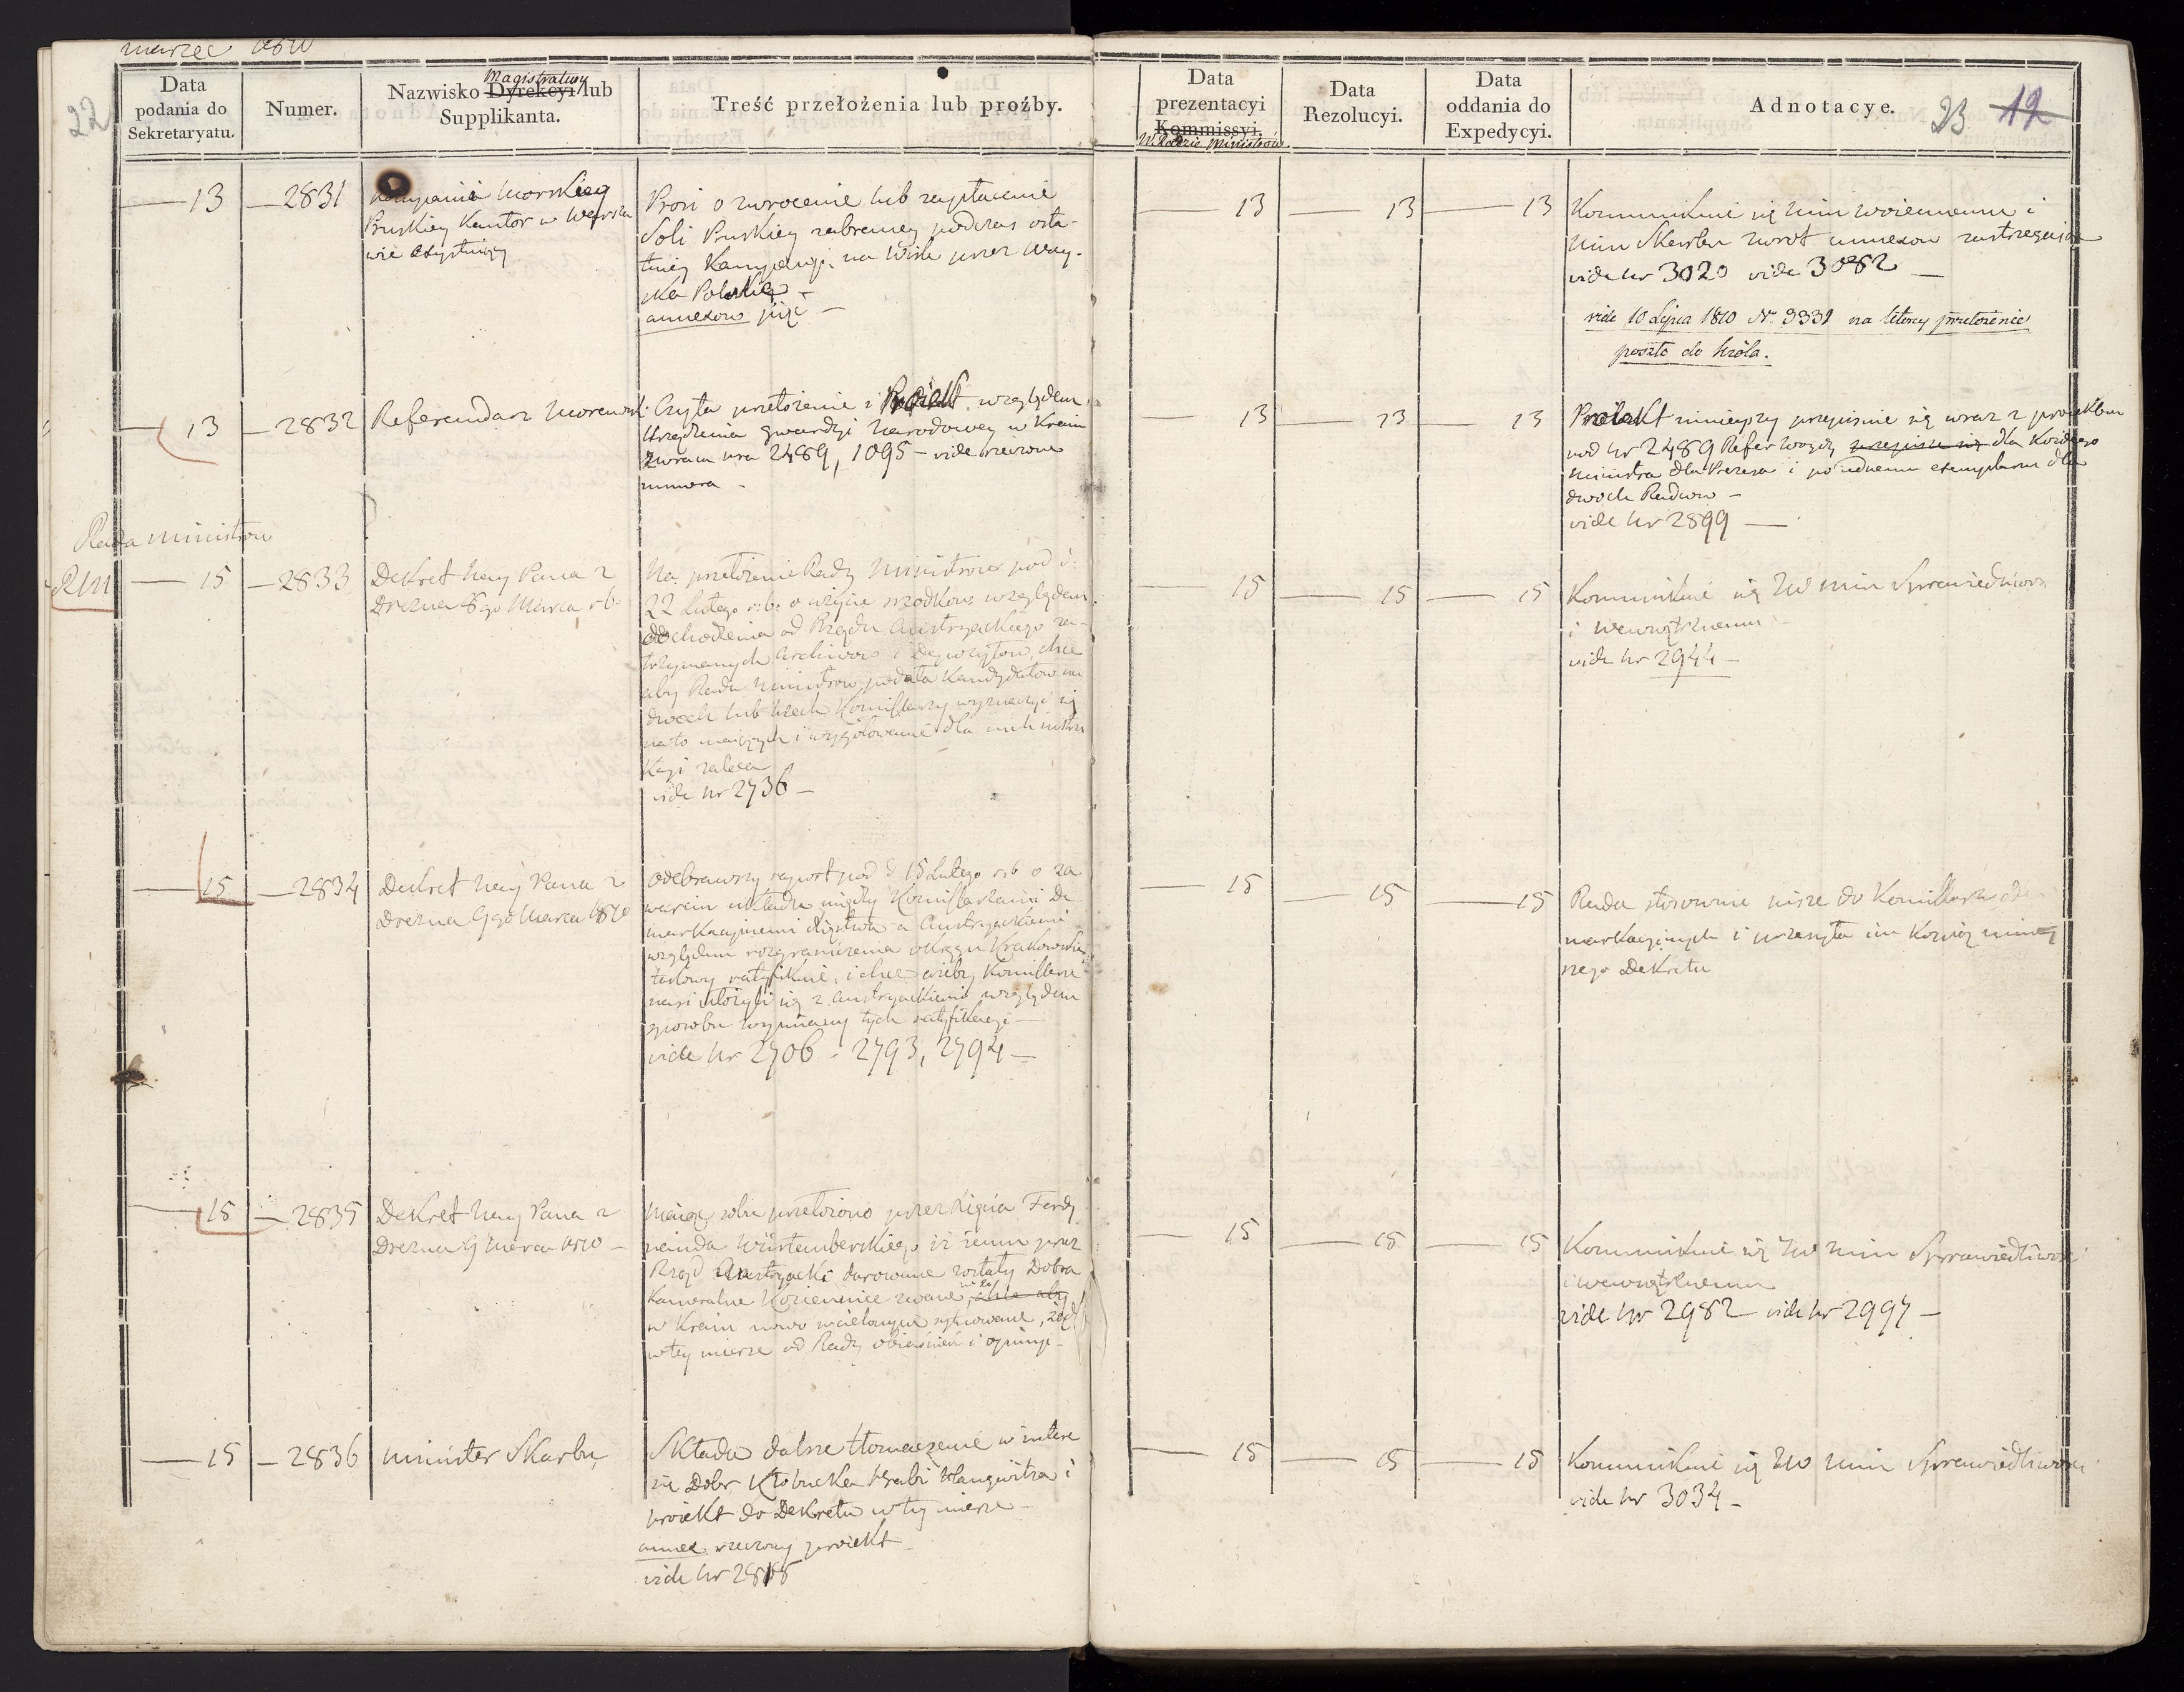 marzec 1810
22
Data podania do Sekretaryatu.
Numer.
Nazwisko Dyrekcyi lub Supplikanta.
Magistratury
Treść przełożenia lub prozby.
Data prezentacyi Kommissyi.
W Radzie Ministrów
Data Rezolucyi.
Data oddania do Expedycyi.
Adnotacye.
23 12
13
2831
Kompanii Morskiey
Pruskiey Kantor w Warsza
wie exystuiący
Prosi o zwrocenie lub zapłacenie
Soli Pruskiey zabraney podczas osta-
tniey Kampanji na Wiśle przez Woy-
ska Polskie -
annexow
13
13
13
Kommunikuie się Min Woiennemu i
Min Skarbu zwrot annexow zastrzegaiąc
vide Nr 3020 vide 3082
vide 10 Lipca 1810 Nr. 9331 na ktorey przełożenie
poszło do Króla.
13
2832
Referendarz Morawski
Czyta przełożenie i Proiekt względem
Urządzenia gwardyi Narodowey w Kraiu
Zwraca nra 2489, 1095 - vide rzeczone
numera -
13
13
13
Proiekt ninieyszy przepisuie się wraz z proiektem
pod Nr 2489 przepisze się dla Każdego
Ministra dla Prezesa i po iednemu exemplarzu dla
dwoch Radzców -
vide Nr 2899 -
Rada Ministrow
RM
15
2833
Dekret Nay Pana z
Drezna 8go Marca r:b:
Na przełożenie Rady Ministrow pod d:
22 Lutego r:b: o użycie srzodkow względem
dochodzenia od Rządu Austryackiego za-
trzymanych Archiwow i Depozytow, chce
aby Rada Ministrow podała Kandydatow na
dwoch lub trzech Komissarzy wyznaczyć się
na to maiących i wygotowanie dla nich instru
kcyi zaleca
vide Nr 2736 -
15
15
15
Kommunikuie się JW Min Sprawiedliwości
i Wewnętrznemu
vide Nr 2944 -
15
2834
Dekret Nay Pana z
Drezna 9go Marca 1810
Odebrawszy raport pod d 15 Lutego r:b o za
warciu układu między Komissarzami De
markacyinemi Xięstwa a Austryackiemi
względem rozgraniczenia okręgu Krakowskie
takowy ratyfikuie, i chce ażeby Komissarze
nasi ułożyli się z Austryackiemi względem
sposobu wymiany tych ratyfikacyi -
vide Nr 2706 - 2793, 2794 -
15
15
15
Rada stosownie pisze do Komissarzy De
markacyinych i przesyła im Kopią niniey
szego Dekretu
15
2835
Dekret Nay Pana z
Drezna 9 Marca 1810 -
Maiąc sobie przełożono przez Xięcia Ferdy
nanda Würtemberskiego iż iemu przez
Rząd Austryacki darowane zostały Dobra
Kameralne Kozienice zwane, chce aby
w Kraiu nowo wcielonym sytuowane, żąda
w tey mierze od Rady obiaśnień i opinji -
15
15
15
Kommunikuie się JW Min Sprawiedliwości
i Wewnętrznemu
vide Nr 2982 - vide Nr 2997 -
15
2836
Minister Skarbu
Składa dalsze tłomaczenie w intere
sie Dobr Kłobucka Hrabi Haugwitza i
proiekt do Dekretu w tey mierze -
annex rzeczony proiekt -
vide Nr 2815
15
15
15
Kommunikuie się JW Min Sprawiedliwości
vide Nr 3034 -